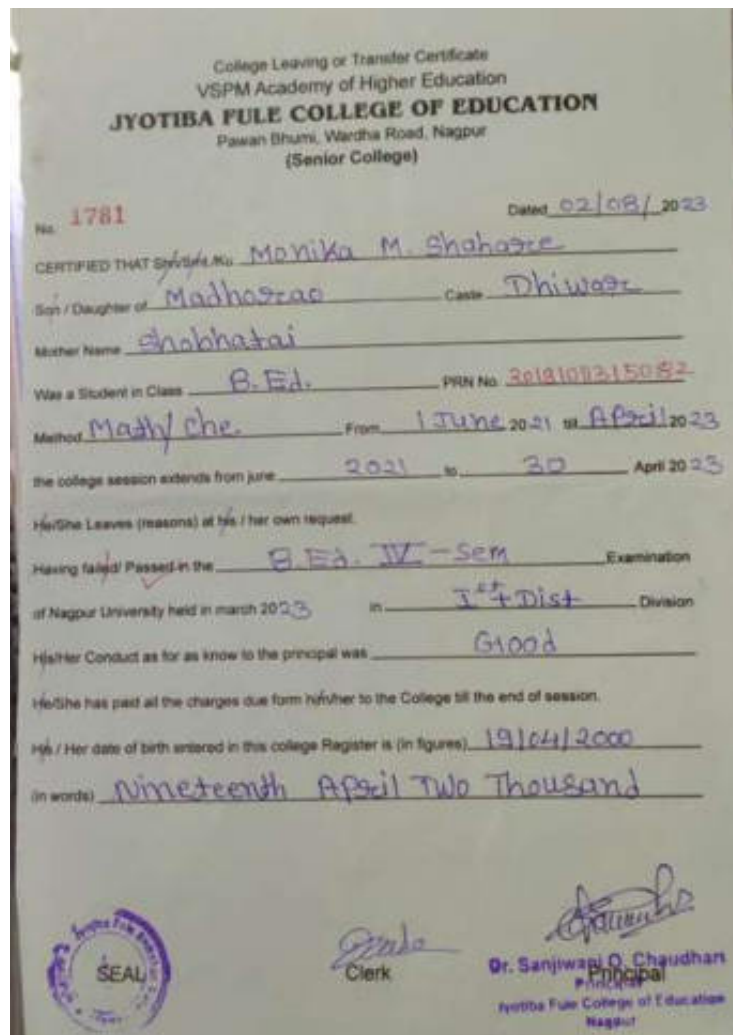 College Leaving or Transfer Certificate
VSPM Academy of Higher Education
JYOTIBA FULE COLLEGE OF EDUCATION
Pawan Bhumi, Wardha Road, Nagpur
(Senior College)
No. 1781 Dated 02/08/2023
CERTIFIED THAT Monika M. Shahare
Son / Daughter of Madhorao Caste Dhiwar
Mother Name Shobhatai
Was a Student in Class B.Ed. PRN No.
Method Math/ Che. From 1 June 2021 till April 2023
the college session extends from june 2021 to 30 April 2023
He/She Leaves (reasons) at his / her own request.
Having failed/ Passed in the B.Ed. IV-Sem Examination
of Nagpur University held in march 2023 in Ist Dist Division
His/Her Conduct as for as know to the principal was Good
He/She has paid all the charges due form him/her to the College till the end of session.
His / Her date of birth entered in this college Register is (in figures) 19/04/2000
(in words) Nineteenth April Two Thousand
SEAL
Clerk
Principal
Dr. Sanjiwani O. Chaudhari
Principal
Jyotiba Fule College of Education
Nagpur